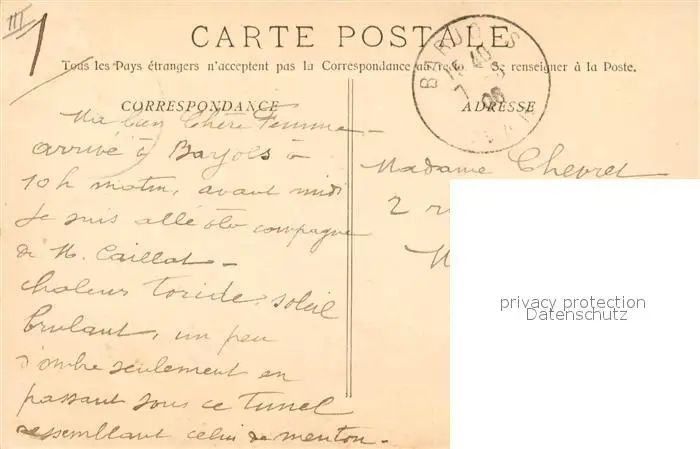 III
1
CARTE POSTALE
Tous les Pays étrangers n'acceptent pas la Correspondance au recto. Se renseigner à la Poste.
CORRESPONDANCE
ADRESSE
BARJOLS
15 40
7
06
VAR
Ma bien Chère Femme
arrivé à Barjols à
10 h matin, avant midi
Je suis allé à la campagne
de M. Caillat
chaleur toride, soleil
brulant, un peu
d'ombre seulement en
passant sous ce tunel
ressemblant celui de menton.
Madame Chevret
2 r
privacy protection
Datenschutz